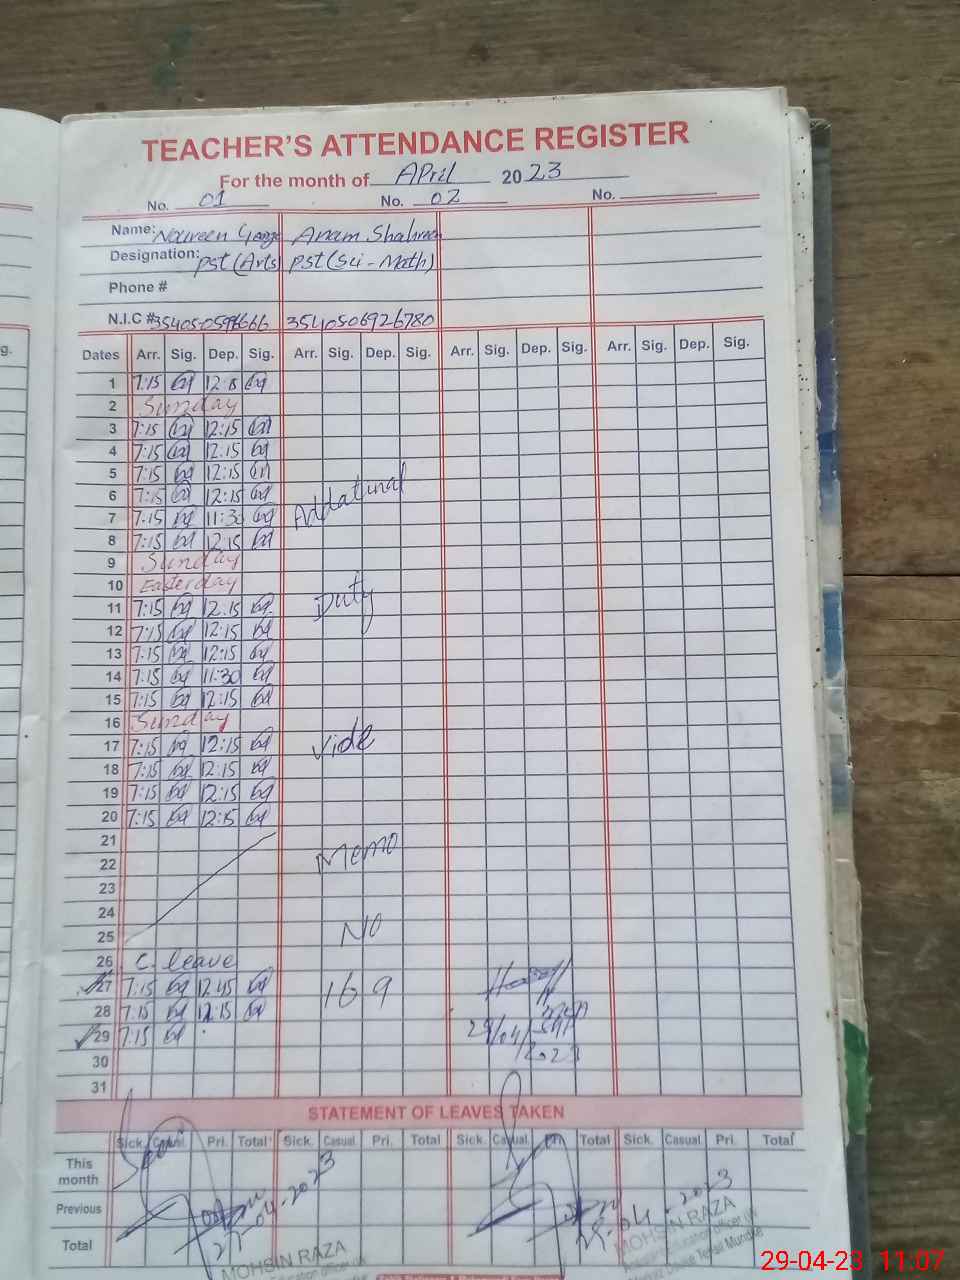 TEACHER'S ATTENDANCE REGISTER
For the month of April 2023
No. 01 No. 02 No.
Name: Noureen Anam
Designation: PST (Arts) PST (Sci-Math)
Phone #
N.I.C # 3540506926780
Dates Arr. Sig. Dep. Sig. Arr. Sig. Dep. Sig. Arr. Sig. Dep. Sig. Arr. Sig. Dep. Sig.
1 7:15
2 Sunday
3 7:15 12:15
4 7:15 12:15
5 7:15 12:15
6 7:15 12:15 Addatinal
7 7:15 11:30
8 7:15 12:15
9 Sunday
10 Easterday
11 7:15 12:15 Duty
12 7:15 12:15
13 7:15 12:15
14 7:15 11:30
15 7:15 12:15
16 Sunday
17 7:15 12:15 Vide
18 7:15 12:15
19 7:15 12:15
20 7:15 12:15
21
22 Memo
23
24
25 NO
26 C. leave
27 7:15 12:45 169
28 7:15 12:15
29 7:15 29/04/2023
30
31
STATEMENT OF LEAVES TAKEN
Sick. Casual. Pri. Total Sick. Casual Pri. Total Sick. Casual. Pri Total Sick. Casual Pri. Total
This month
Previous
Total
27-04-2023
29-04-2023
MOHSIN RAZA
MOHSIN RAZA
29-04-23 11:07